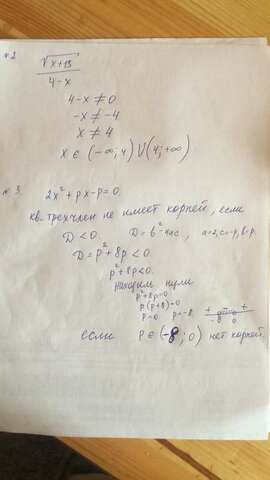 №2
√x+13
4-x
4-x ≠ 0
-x ≠ -4
x ≠ 4
x ∈ (-∞; 4) ∪ (4; +∞)
№ 3. 2x² + px - p = 0
кв. трехчлен не имеет корней, если
D < 0. D = b² - 4ac, a=2, c=-p, b=p.
D = p² + 8p < 0
p² + 8p < 0
находим нули
p² + 8p = 0
p(p+8) = 0
p = 0 p = -8 + - +
-8 0
если p ∈ (-8; 0) нет корней.